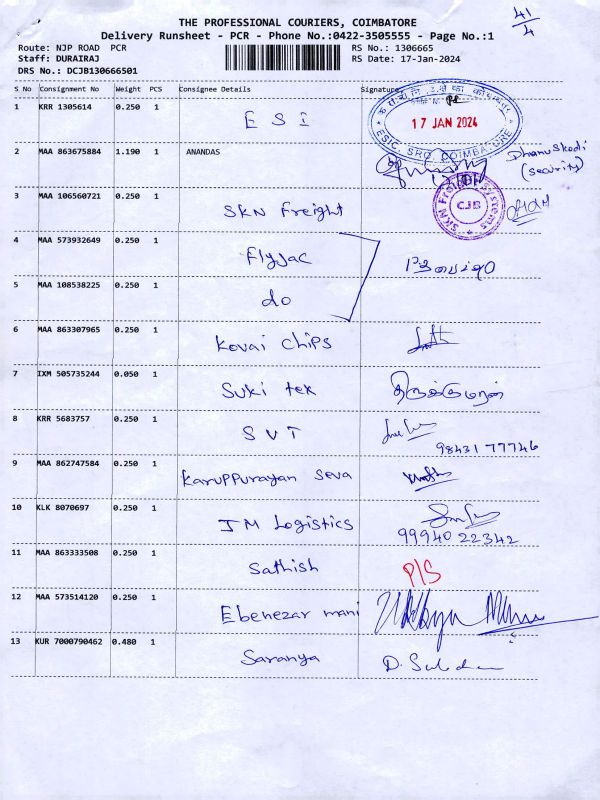 41/4
THE PROFESSIONAL COURIERS, COIMBATORE
Delivery Runsheet - PCR - Phone No.:0422-3505555 - Page No.:1
Route: NJP ROAD PCR RS No.: 1306665
Staff: DURAIRAJ RS Date: 17-Jan-2024
DRS No.: DCJB130666501
S No Consignment No Weight PCS Consignee Details Signature
1 KRR 1305614 0.250 1 E S I
17 JAN 2024
ESIC, SRO, COIMBATORE
2 MAA 863675884 1.190 1 ANANDAS Dhanuskodi
(security)
3 MAA 106560721 0.250 1 SKN Freight
SKN Freight Systems
CJB
4 MAA 573932649 0.250 1 Flyjac
5 MAA 108538225 0.250 1 do
6 MAA 863307965 0.250 1 Kovai chips
7 IXM 505735244 0.050 1 Suki tek
8 KRR 5683757 0.250 1 S V T
98431 77746
9 MAA 862747584 0.250 1 Karuppurayan Seva
10 KLK 8070697 0.250 1 JM Logistics
99940 22342
11 MAA 863333508 0.250 1 Sathish P/S
12 MAA 573514120 0.250 1 Ebenezar mani
13 KUR 7000790462 0.480 1 Saranya